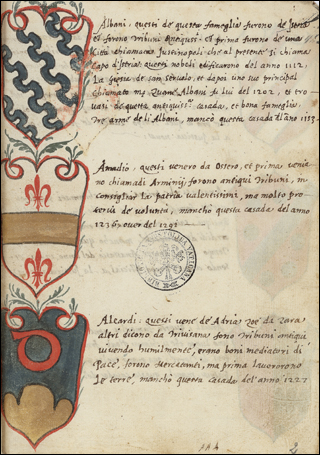 Albani, questi de questa fameglia furono de Jstria
et forono Tribuni Antiqui: et prima furono de una
Città chiamata Justinopoli che al presente si chiama
Capo d'Istria: questi nobeli edificorono del anno 1112.
La chiesia de san Servolo, et dapoi uno suo principal
chiamato Albani fu lui del 1202, et
de questa casada, et bona fameglia
de li Albani, mancò questa casada d'l año
Amadio, questi venero da Ossero, et prima venia
no chiamadi Arminij, forono antiqui Tribuni, in
consigliar la patria valentissimi, ma molto pro
de voluntà, manchò questa casada del anno
1236 over del 1291
Alcardi, questi vene de Adria zoè da zara
altri dicono da Trivisana forno Tribuni antiqui
vivendo humilmente, erano boni mediatori di
Pace, forono Mercatanti, ma prima lavororono
le terre, manchò questa casada del anno 1227
2